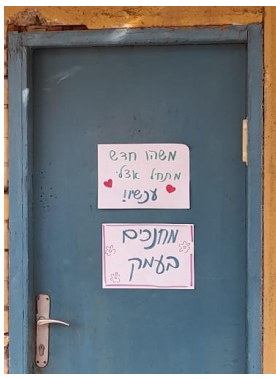 משהו חדש
מתחיל אצלי
עכשיו!
מחנכים
בעמק